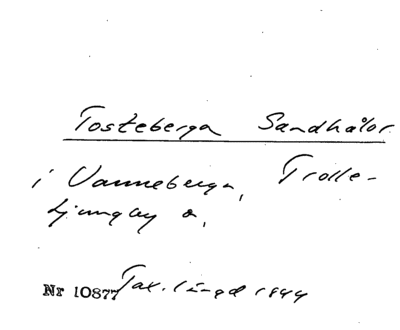 Tosteberga Sandhålor
i Vanneberga, Trolle-
Ljungby s,
Nr 10877 Tax. längd 1844